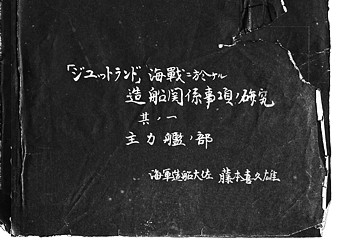 「ジユットランド」海戦ニ於ケル
造船関係事項ノ研究
其ノ一
主力艦ノ部
海軍造船大佐 藤本喜久雄